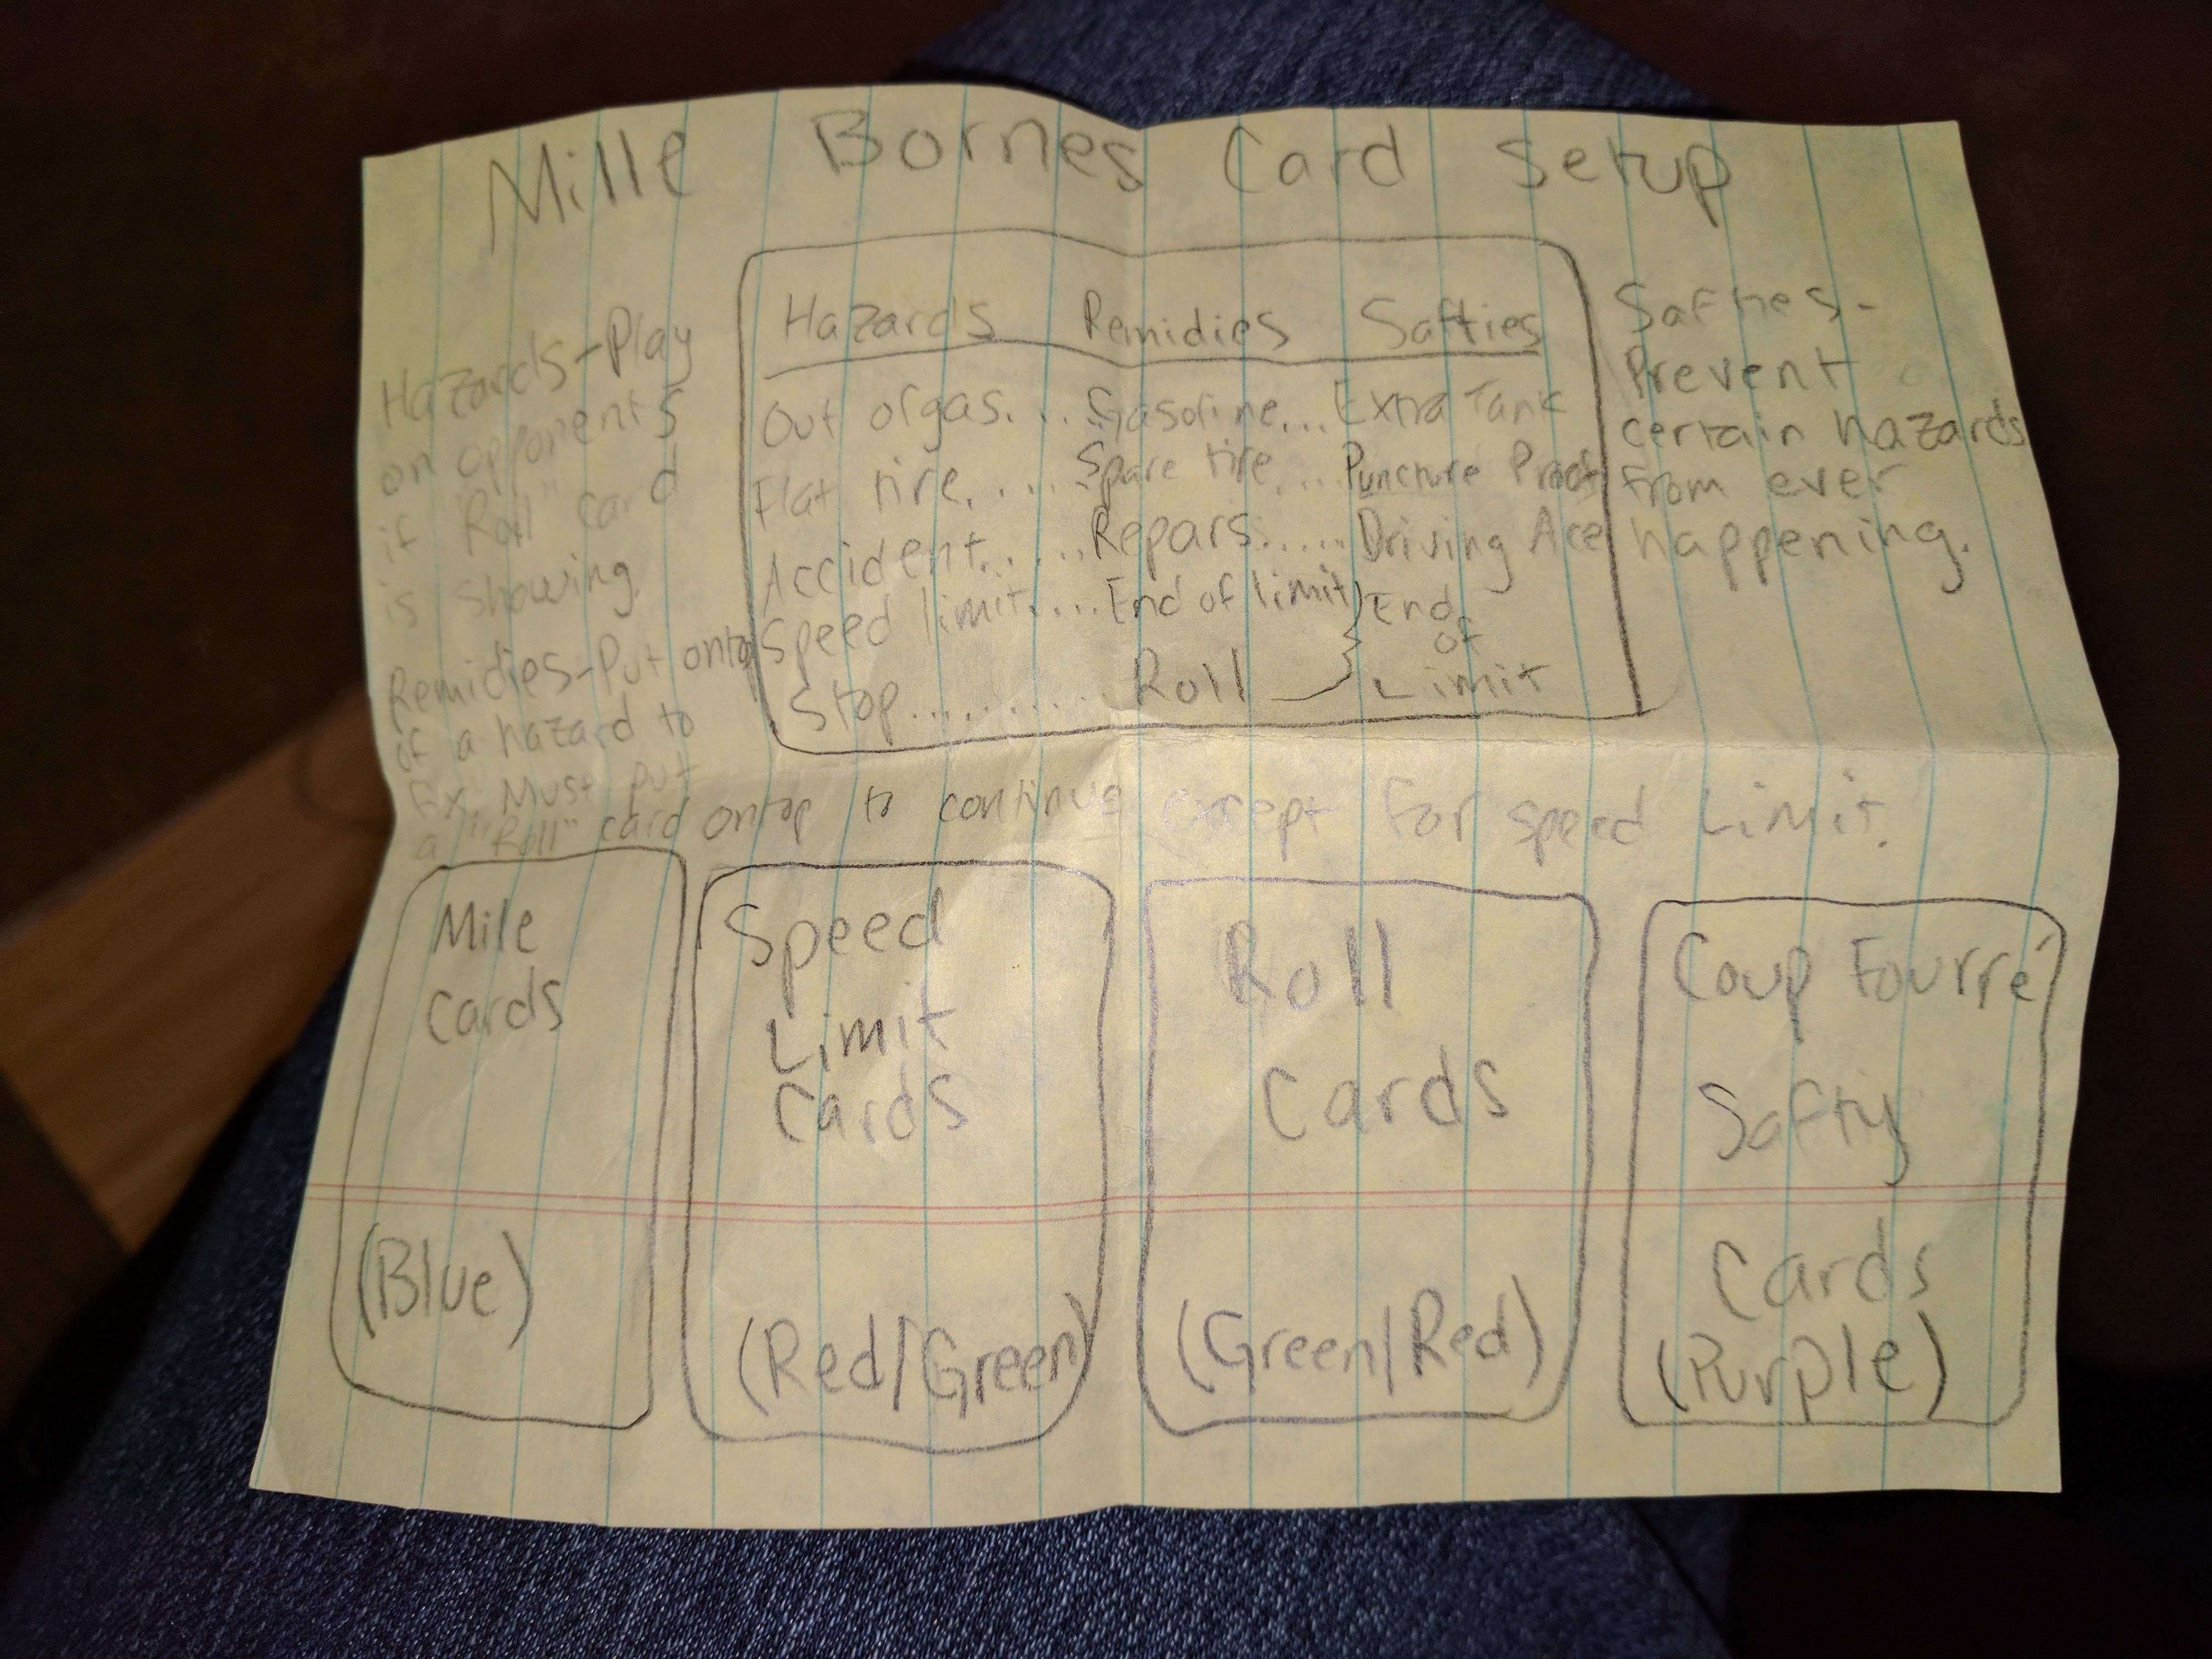 Mille Bornes Card Setup
Hazards-Play
on opponents
if "Roll" card
is showing
Remidies-Put ontop
of a hazard to
fix. Must put
a "Roll" card ontop to continue except for speed Limit.
Hazards Remidies Safties
Out of gas....Gasoline...Extra Tank
Flat tire.....Spare tire....Puncture Proof
Accident.....Repars.....Driving Ace
Speed limit....End of limit } End
of
Stop..........Roll Limit
Safties-
Prevent
certain hazards
from ever
happening.
Mile
Cards
(Blue)
Speed
Limit
Cards
(Red/Green)
Roll
Cards
(Green/Red)
Coup Fourré
Safty
Cards
(Purple)